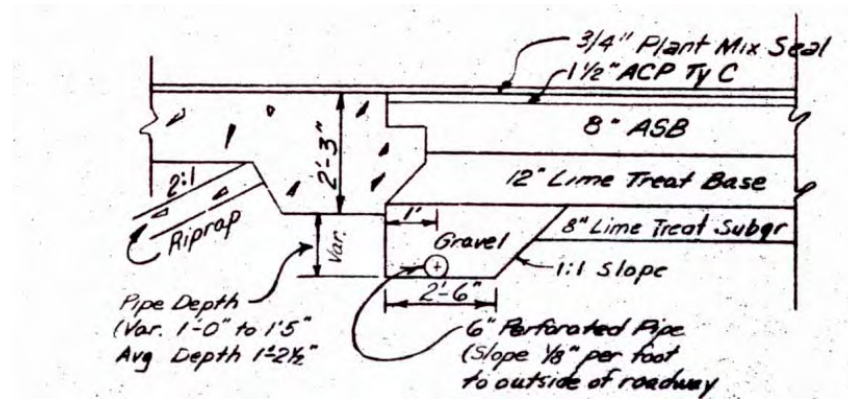 3/4" Plant Mix Seal
1 1/2" ACP Ty C
8" ASB
2'-3"
2:1
12" Lime Treat Base
Riprap
1'
Gravel
8" Lime Treat Subgr
Var.
1:1 Slope
2'-6"
Pipe Depth
(Var. 1'-0" to 1'5"
Avg Depth 1'-2 1/2"
6" Perforated Pipe
(Slope 1/8" per foot
to outside of roadway